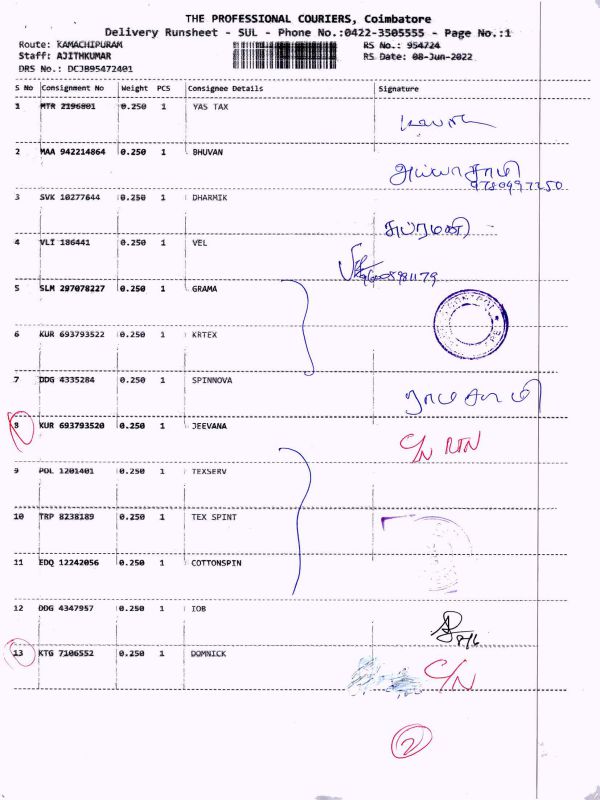 THE PROFESSIONAL COURIERS, Coimbatore
Delivery Runsheet - SUL - Phone No.:0422-3505555 - Page No.:1
Route: KAMACHIPURAM RS No.: 954724
Staff: AJITHKUMAR RS Date: 08-Jun-2022
DRS No.: DCJB95472401
S No Consignment No Weight PCS Consignee Details Signature
1 MTR 2196801 0.250 1 YAS TAX
2 MAA 942214864 0.250 1 BHUVAN
3 SVK 10277644 0.250 1 DHARMIK
4 VLI 186441 0.250 1 VEL
5 SLM 297078227 0.250 1 GRAMA
6 KUR 693793522 0.250 1 KRTEX
7 DDG 4335284 0.250 1 SPINNOVA
8 KUR 693793520 0.250 1 JEEVANA
C/N RTN
9 POL 1201401 0.250 1 TEXSERV
10 TRP 8238189 0.250 1 TEX SPINT
11 EDQ 12242056 0.250 1 COTTONSPIN
12 DDG 4347957 0.250 1 IOB
13 KTG 7106552 0.250 1 DOMNICK
C/N
2